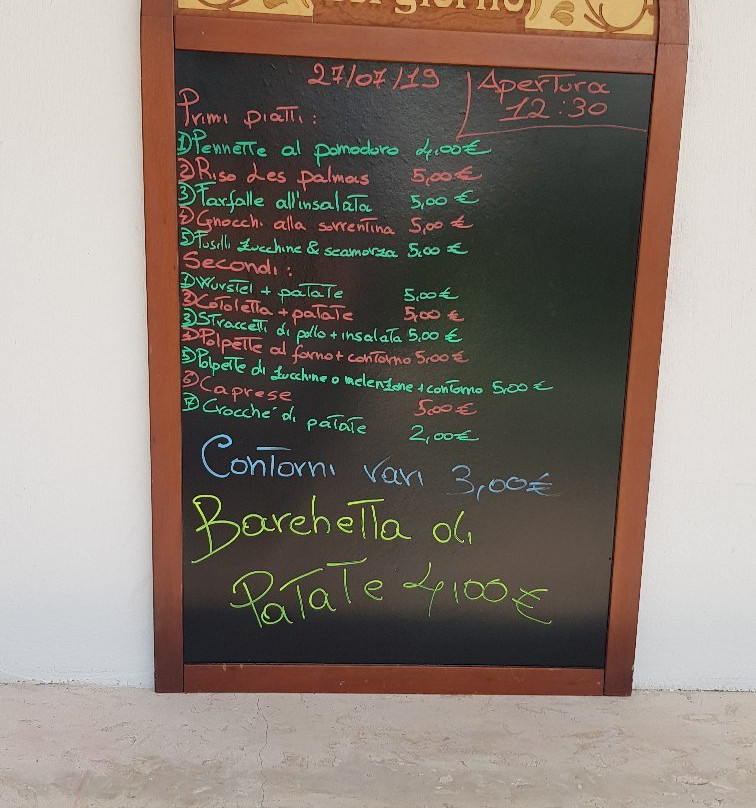 del giorno
27/07/19
Apertura
12:30
Primi piatti:
1) Pennette al pomodoro 4,00€
2) Riso Les palmas 5,00€
3) Farfalle all'insalata 5,00€
4) Gnocchi alla sorrentina 5,00€
5) Fusilli zucchine & scamorza 5,00€
Secondi:
1) Wurstel + patate 5,00€
2) Cotoletta + patate 5,00€
3) Straccetti di pollo + insalata 5,00€
4) Polpette al forno + contorno 5,00€
5) Polpette di zucchine o melenzane + contorno 5,00€
6) Caprese 5,00€
7) Crocche' di patate 2,00€
Contorni vari 3,00€
Barchetta di
Patate 4,00€